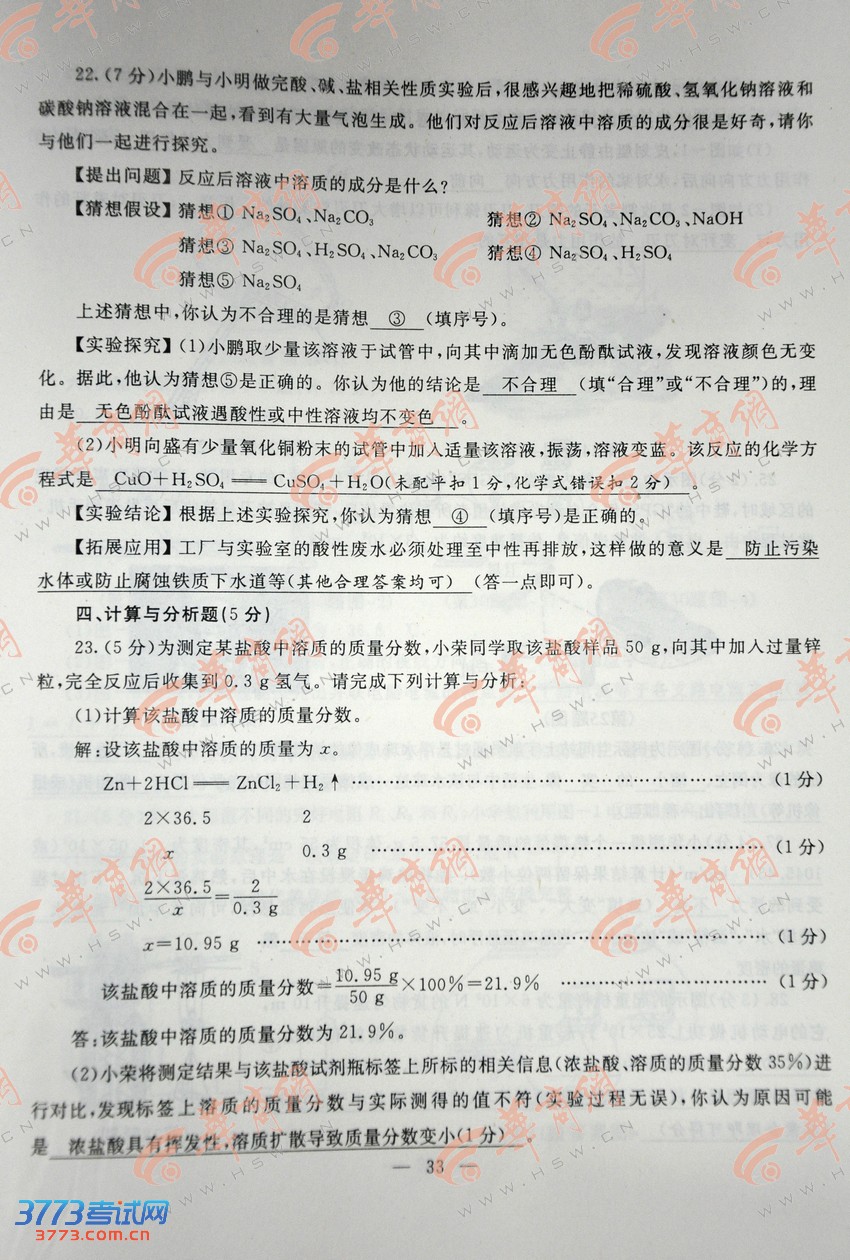 22.(7分)小鹏与小明做完酸、碱、盐相关性质实验后,很感兴趣地把稀硫酸、氢氧化钠溶液和
碳酸钠溶液混合在一起,看到有大量气泡生成。他们对反应后溶液中溶质的成分很是好奇,请你
与他们一起进行探究。
【提出问题】反应后溶液中溶质的成分是什么?
【猜想假设】猜想① Na₂SO₄、Na₂CO₃ 猜想② Na₂SO₄、Na₂CO₃、NaOH
猜想③ Na₂SO₄、H₂SO₄、Na₂CO₃ 猜想④ Na₂SO₄、H₂SO₄
猜想⑤ Na₂SO₄
上述猜想中,你认为不合理的是猜想 ③ (填序号)。
【实验探究】(1)小鹏取少量该溶液于试管中,向其中滴加无色酚酞试液,发现溶液颜色无变
化。据此,他认为猜想⑤是正确的。你认为他的结论是 不合理 (填“合理”或“不合理”)的,理
由是 无色酚酞试液遇酸性或中性溶液均不变色 。
(2)小明向盛有少量氧化铜粉末的试管中加入适量该溶液,振荡,溶液变蓝。该反应的化学方
程式是 CuO+H₂SO₄══CuSO₄+H₂O(未配平扣1分,化学式错误扣2分) 。
【实验结论】根据上述实验探究,你认为猜想 ④ (填序号)是正确的。
【拓展应用】工厂与实验室的酸性废水必须处理至中性再排放,这样做的意义是 防止污染
水体或防止腐蚀铁质下水道等(其他合理答案均可) (答一点即可)。
四、计算与分析题(5分)
23.(5分)为测定某盐酸中溶质的质量分数,小荣同学取该盐酸样品50 g,向其中加入过量锌
粒,完全反应后收集到0.3 g氢气。请完成下列计算与分析:
(1)计算该盐酸中溶质的质量分数。
解:设该盐酸中溶质的质量为x。
Zn+2HCl══ZnCl₂+H₂↑ …………………………………………(1分)
2×36.5 2
x 0.3 g …………………………………………(1分)
2×36.5/x=2/0.3 g
x=10.95 g …………………………………………(1分)
该盐酸中溶质的质量分数=10.95 g/50 g×100%=21.9% ………………(1分)
答:该盐酸中溶质的质量分数为21.9%。
(2)小荣将测定结果与该盐酸试剂瓶标签上所标的相关信息(浓盐酸、溶质的质量分数35%)进
行对比,发现标签上溶质的质量分数与实际测得的值不符(实验过程无误),你认为原因可能
是 浓盐酸具有挥发性,溶质扩散导致质量分数变小(1分) 。
— 33 —
3773考试网
3773.com.cn
华商网
WWW.HSW.CN